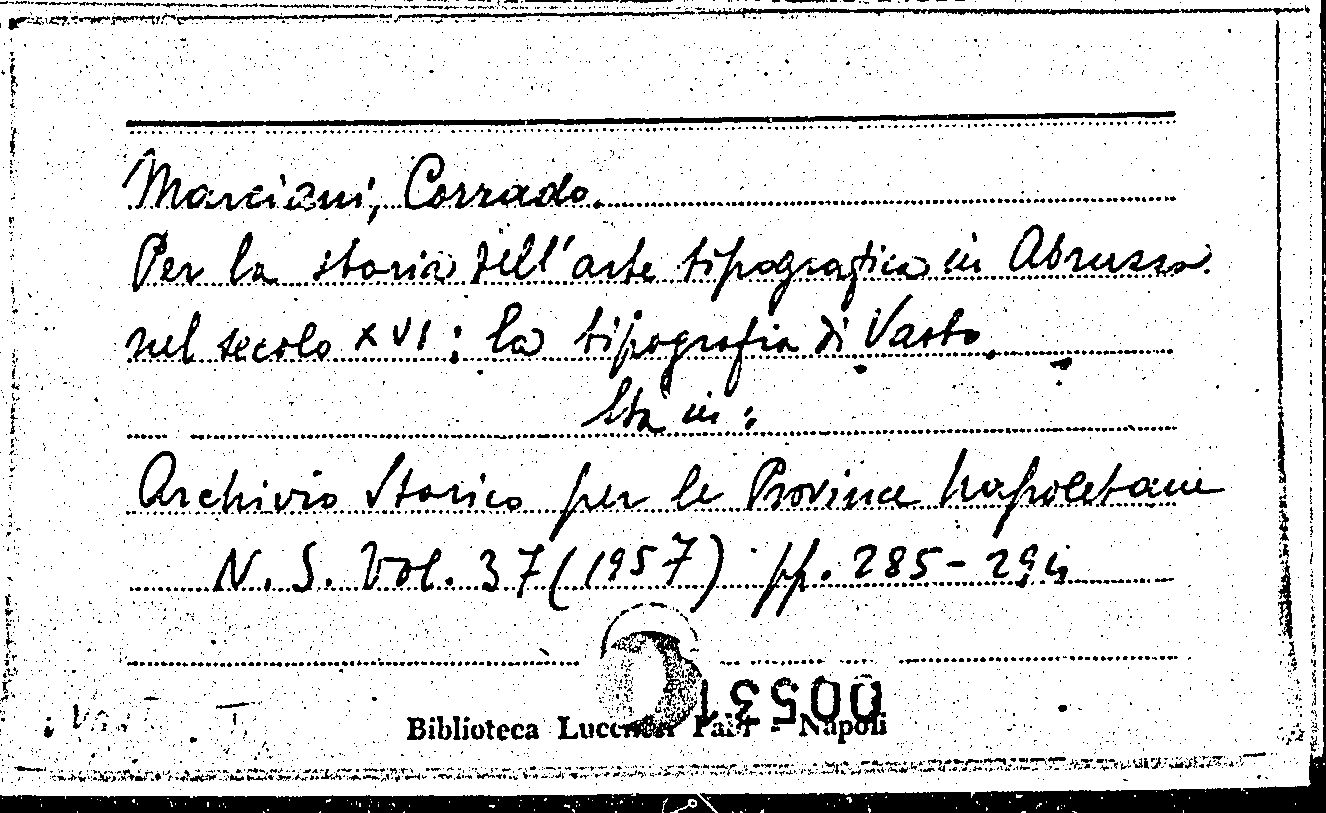 Marciani, Corrado.
Per la storia dell'arte tipografica in Abruzzo
nel secolo XVI: la tipografia di Vasto.
Sta in:
Archivio Storico per le Province Napoletane
N. S. Vol. 37 (1957) pp. 285-294
00531
Biblioteca Lucchesi Palli - Napoli